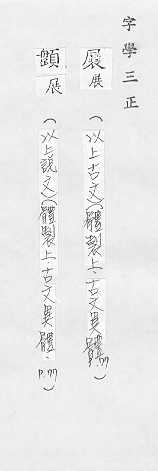 字學三正
展展(以上古文)(體製上·古文異體.P.77)
顫展(以上說文)(體製上古文異體.P.77)